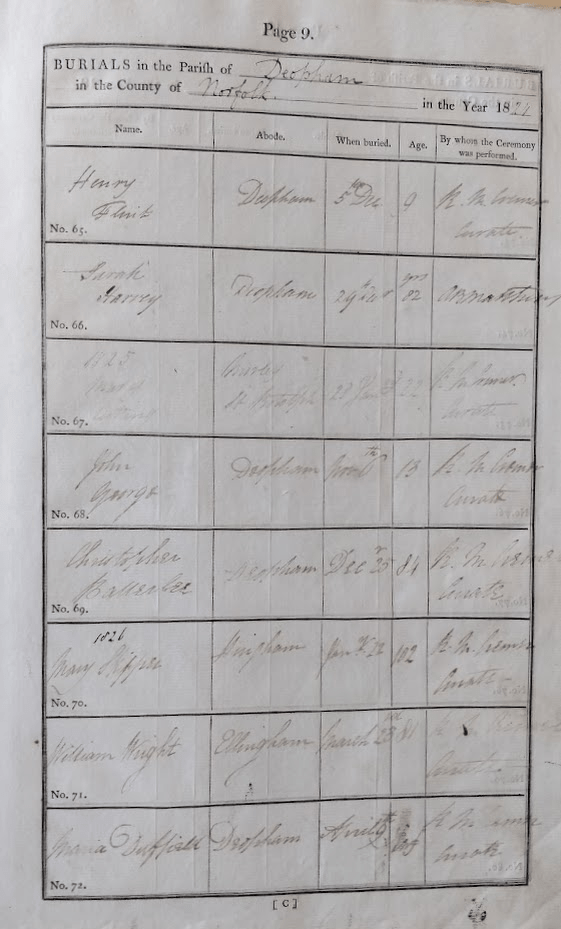 Page 9.
BURIALS in the Parish of Deopham
in the County of Norfolk. in the Year 1824
Name. Abode. When buried. Age. By whom the Ceremony was performed.
Henry Flint Deopham 5th Dec 9 R. M. Cremer Curate.
No. 65.
Sarah Harvey Deopham yrs 82
No. 66.
1825
Mary 28 R. M. Cremer Curate
No. 67.
John George Deopham 13 R. M. Cremer Curate
No. 68.
Christopher Deopham Decr 25 84 R. M. Cremer Curate
No. 69.
1826
Mary Skipper Hingham Jany 22 102 R. M. Cremer Curate
No. 70.
William Wright Ellingham March 23rd 81 R. M. Cremer Curate
No. 71.
Maria Duffield Deopham April R. M. Cremer Curate
No. 72.
[ C ]